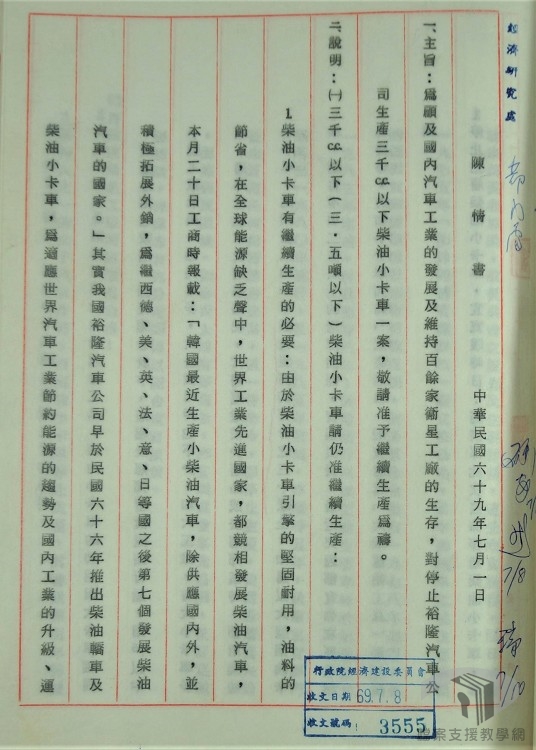 經濟研究處
陳情書
中華民國六十九年七月一日
一、主旨：為顧及國內汽車工業的發展及維持百餘家衛星工廠的生存，對停止裕隆汽車公
司生產三千c.c.以下柴油小卡車一案，敬請准予繼續生產為禱。
二、說明：㈠三千c.c.以下（三・五噸以下）柴油小卡車請仍准繼續生產：
1.柴油小卡車有繼續生產的必要：由於柴油小卡車引擎的堅固耐用，油料的
節省，在全球能源缺乏聲中，世界工業先進國家，都競相發展柴油汽車，
本月二十日工商時報載：「韓國最近生產小柴油汽車，除供應國內外，並
積極拓展外銷，為繼西德、美、英、法、意、日等國之後第七個發展柴油
汽車的國家。」其實我國裕隆汽車公司早於民國六十六年推出柴油轎車及
柴油小卡車，為適應世界汽車工業節約能源的趨勢及國內工業的升級、運
7/8
7/10
行政院經濟建設委員會
收文日期 69.7.8
收文號碼 3555
檔案支援教學網